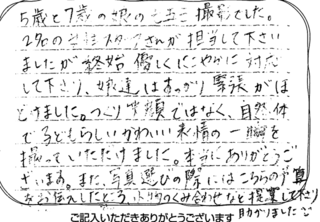 5歳と7歳の娘の七五三撮影でした。
2名の女性スタッフさんが担当して下さい
ましたが終始優しくにこやかに対応
して下さり、娘達はすっかり緊張がほ
どけました。つくり笑顔ではなく、自然体
で子どもらしいかわいい表情の一瞬を
撮っていただけました。本当にありがとうご
ざいます。また、写真選びの際にはこちらの予算
をお伝えしたところ、のくみ合わせなど提案して下さり
助かりました
ご記入いただきありがとうございます